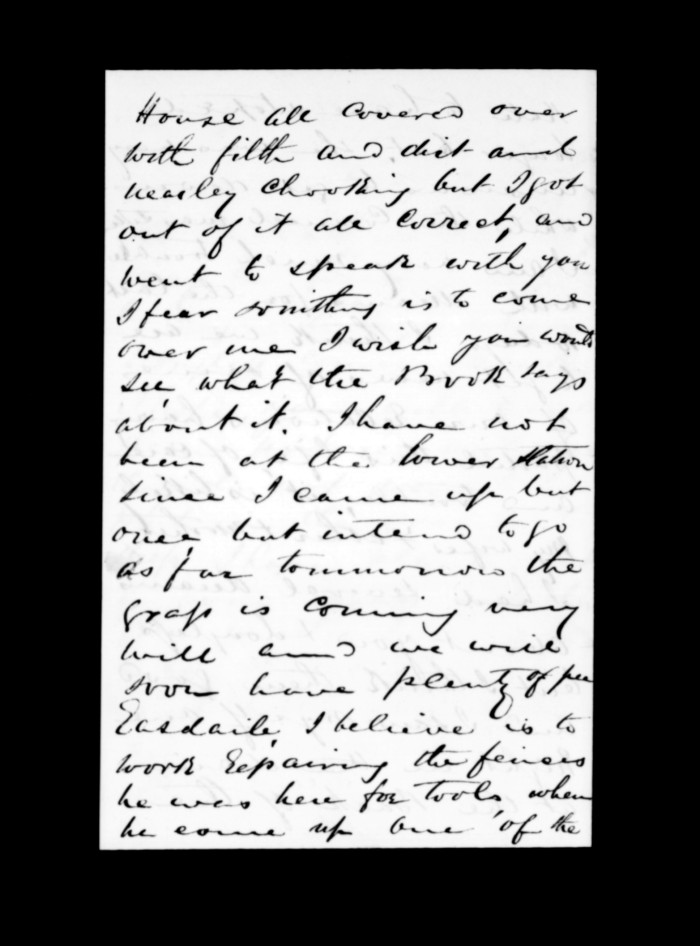 House all covered over
with filth and dirt and
nearley chooking but I got
out of it all correct, and
went to speak with you
I fear somithing is to come
over me I wish you would
see what the Book says
about it. I have not
been at the lower station
since I came up but
once, but intend to go
as far tommorrow the
grass is coming very
will and we will
soon have plenty of
Easdaile, I believe is to
work Repairing the fences
he was here for tools, when
he come up one of the